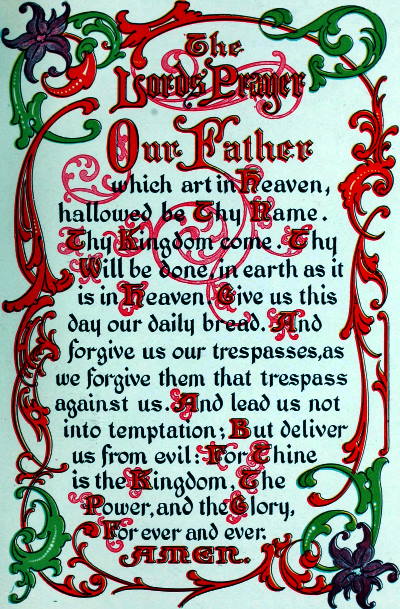 The
Lords Prayer
Our Father
which art in Heaven,
hallowed be Thy Name.
Thy Kingdom come. Thy
Will be done, in earth as it
is in Heaven. Give us this
day our daily bread. And
forgive us our trespasses, as
we forgive them that trespass
against us. And lead us not
into temptation; But deliver
us from evil: For Thine
is the Kingdom, The
Power, and the Glory,
For ever and ever.
AMEN.